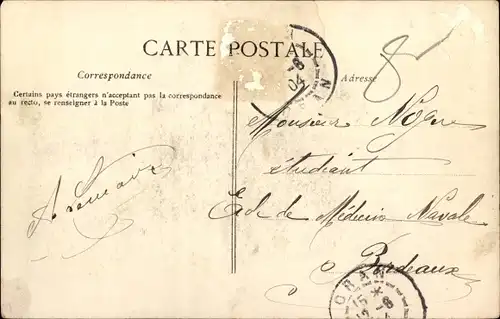 CARTE POSTALE
Correspondance
Adresse
Certains pays étrangers n'acceptant pas la correspondance
au recto, se renseigner à la Poste
-8
04
Monsieur
étudiant
de Médecine Navale
Bordeaux
ORAN
15 *
-8